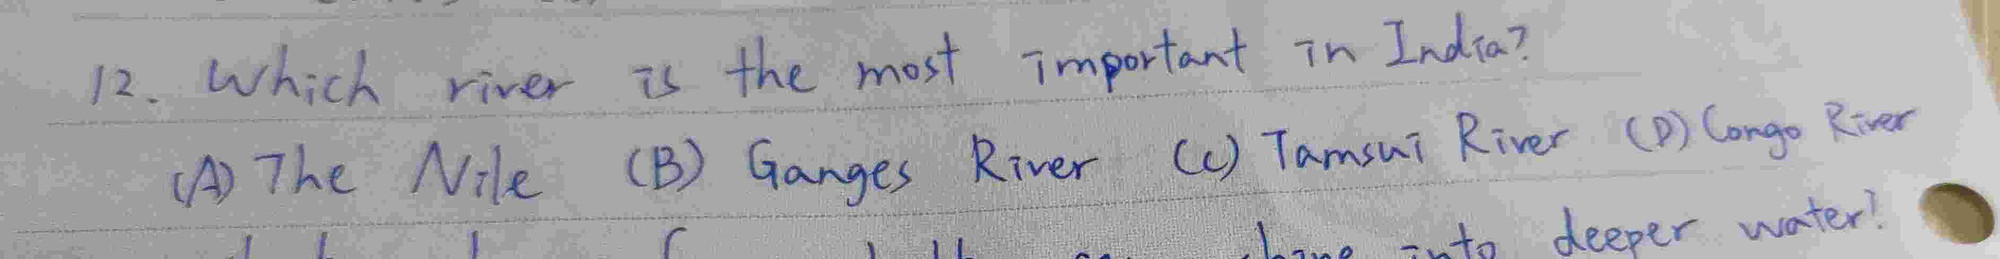 12. Which river is the most important in India?
(A) The Nile (B) Ganges River (C) Tamsui River (D) Congo River
into deeper water?